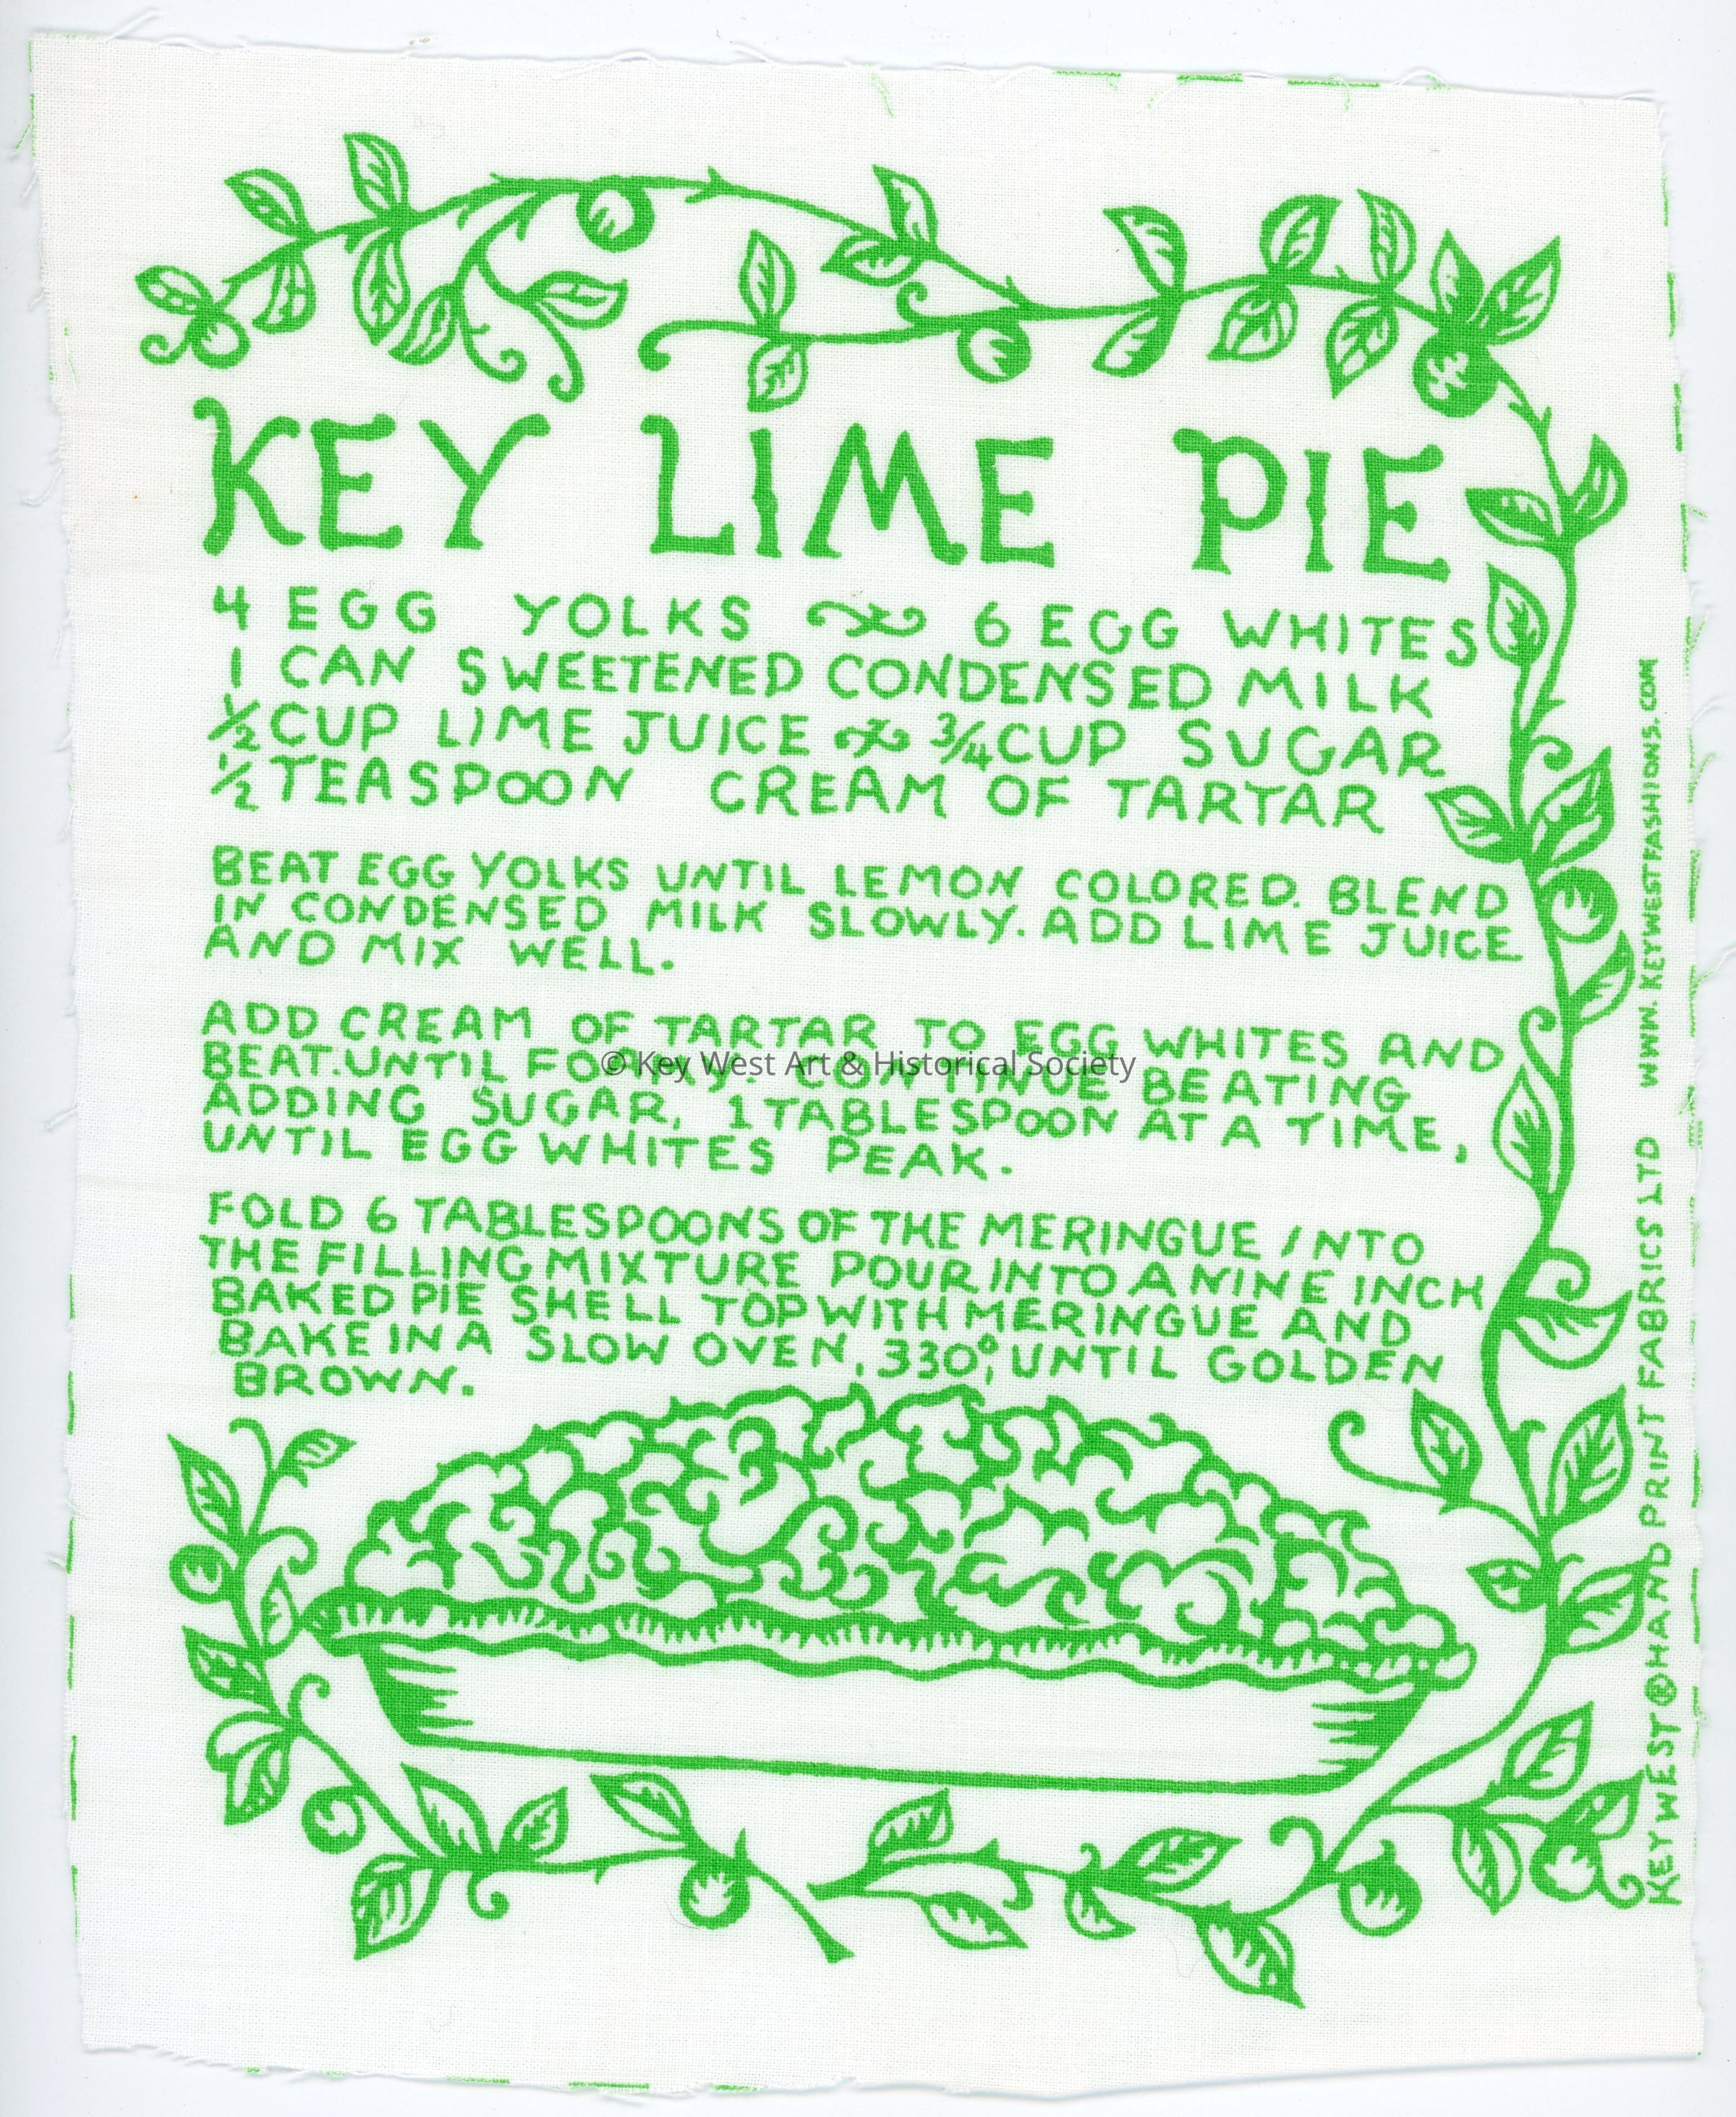 KEY LIME PIE
4 EGG YOLKS 6 EGG WHITES
1 CAN SWEETENED CONDENSED MILK
½ CUP LIME JUICE ¾ CUP SUGAR
½ TEASPOON CREAM OF TARTAR
BEAT EGG YOLKS UNTIL LEMON COLORED. BLEND
IN CONDENSED MILK SLOWLY. ADD LIME JUICE
AND MIX WELL.
ADD CREAM OF TARTAR TO EGG WHITES AND
BEAT.UNTIL FOAMY. CONTINUE BEATING
ADDING SUGAR, 1 TABLESPOON AT A TIME,
UNTIL EGG WHITES PEAK.
FOLD 6 TABLESPOONS OF THE MERINGUE INTO
THE FILLING MIXTURE POUR INTO A NINE INCH
BAKED PIE SHELL TOP WITH MERINGUE AND
BAKE IN A SLOW OVEN, 330°, UNTIL GOLDEN
BROWN.
© Key West Art & Historical Society
KEY WEST ® HAND PRINT FABRICS LTD WWW.KEYWESTFASHIONS.COM